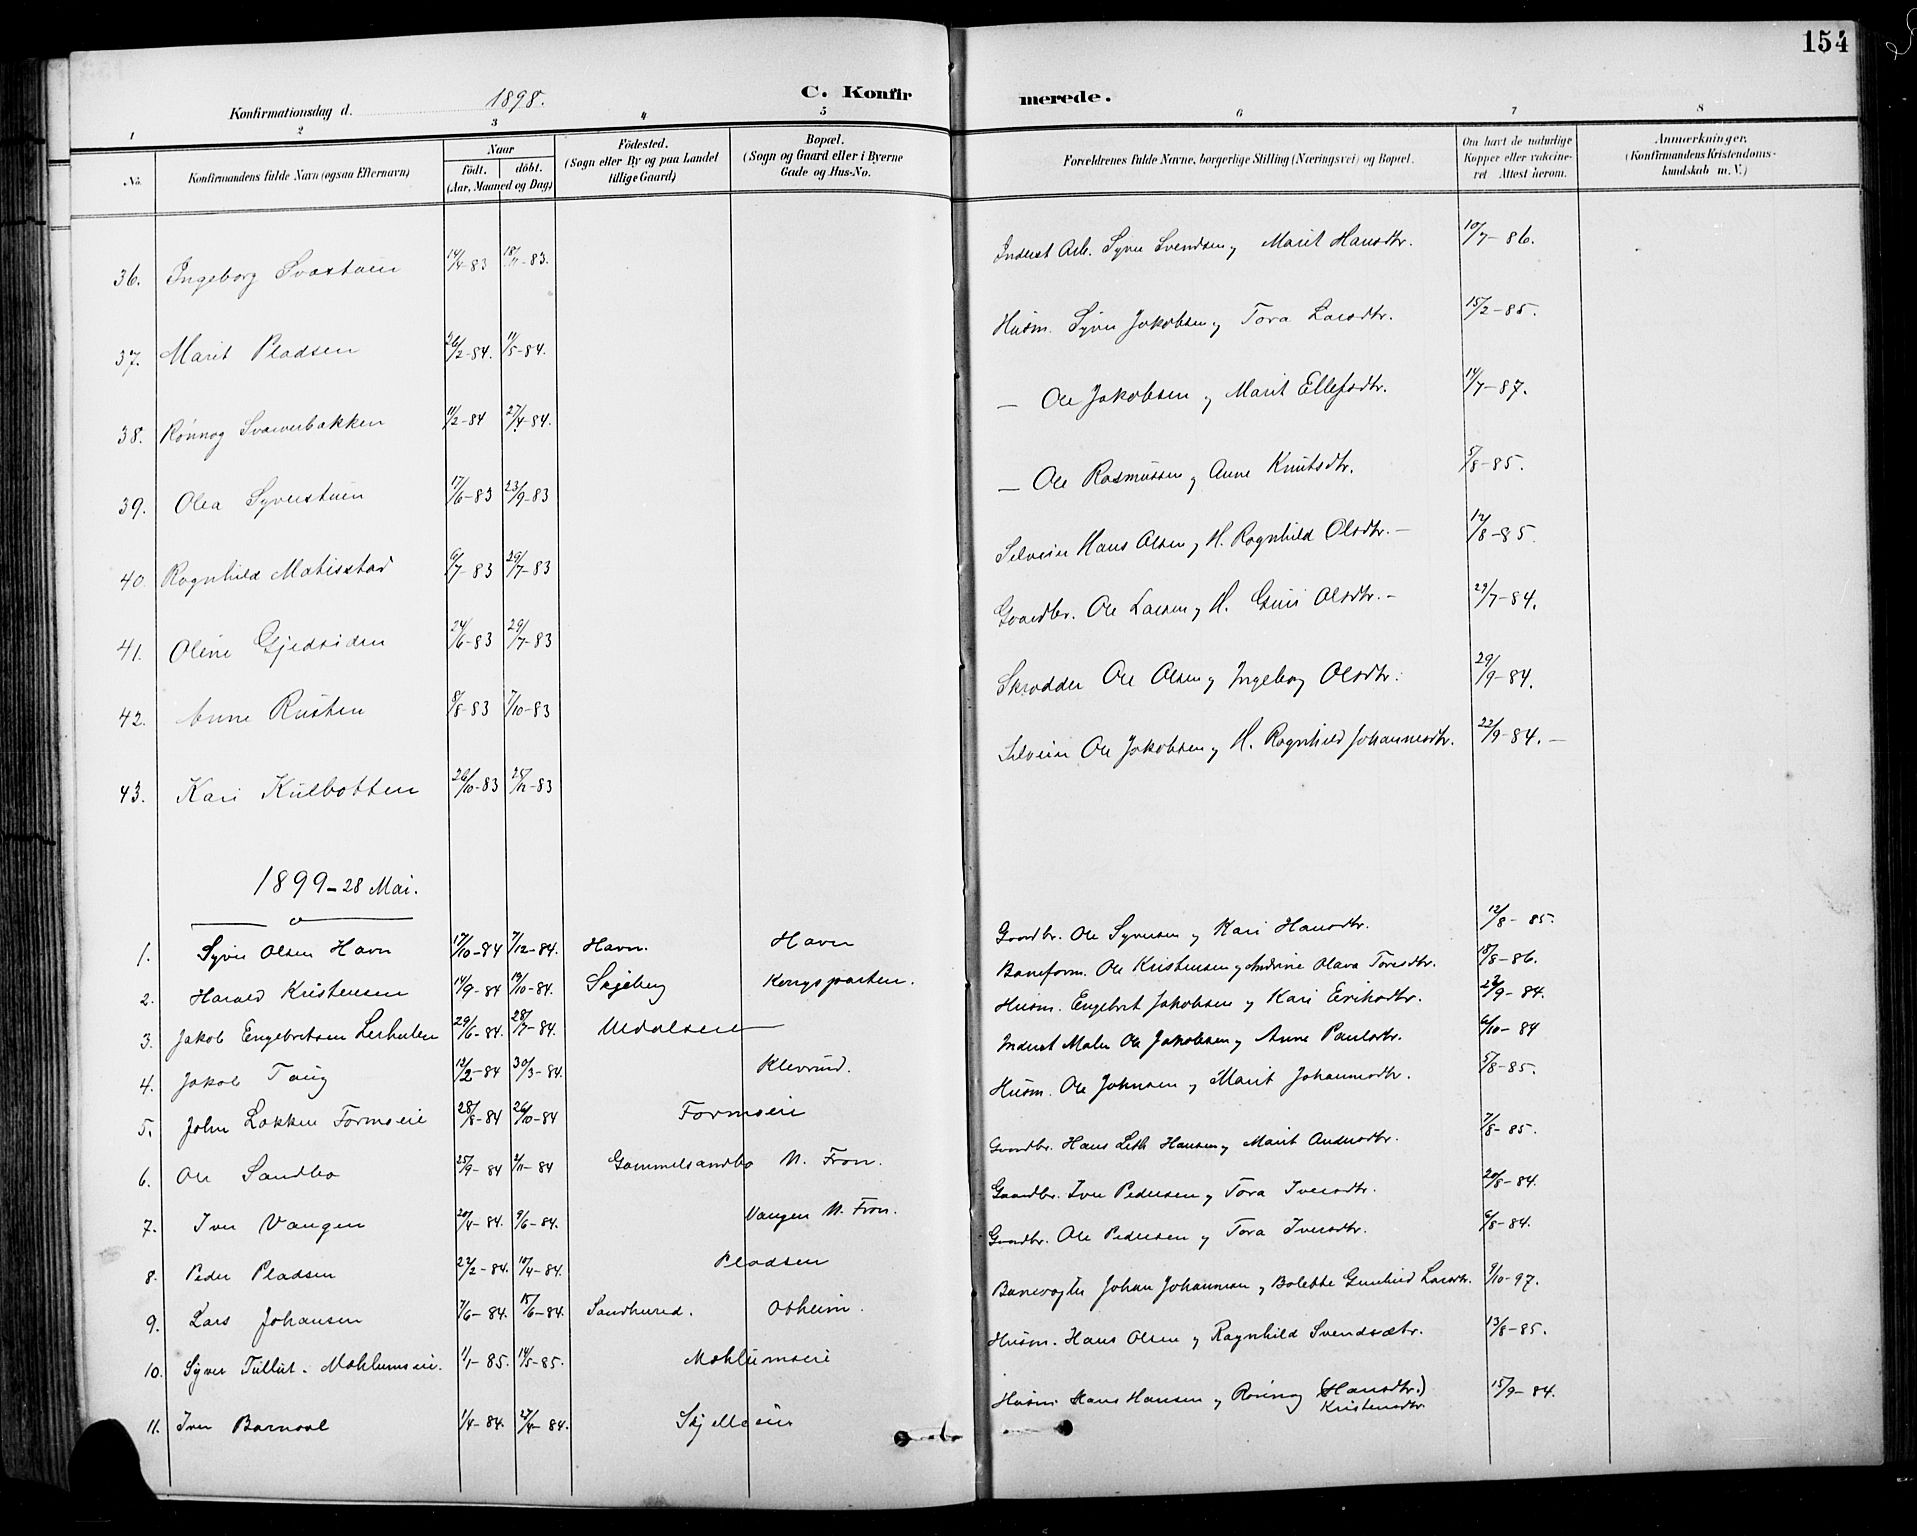 154
C. Konfirmerede.
Konfirmationsdag d. 1898.
1 2 3 4 5 6 7 8
No.
Konfirmandens fulde Navn (ogsaa Efternavn)
Naar født. døbt. (Aar, Maaned og Dag)
Födested. (Sogn eller By og paa Landet tillige Gaard)
Bopæl. (Sogn og Gaard eller i Byerne Gade og Hus-No.
Forældrenes fulde Navne, borgerlige Stilling (Næringsvei) og Bopæl.
Om havt de naturlige Kopper eller vakcineret Attest herom.
Anmærkninger. (Konfirmandens Kristendomskundskab m. V.)
36. Ingeborg 14/4-83 18/11-83. Inderst Arb. Syver Svendsen og Marit Hansdtr. 10/7-86.
37. Marit Pladsen 26/2-84. 11/5-84. Husm. Syver Jakobsen og Tora Larsdtr. 15/2-85.
38. Rønnog Svarverbakken 11/2-84 27/4-84. — Ole Jakobsen og Marit Ellefsdtr. 14/7-87.
39. Olea Syverstuen 17/6-83 23/9-83 — Ole Rasmussen og Anne Knutsdtr. 5/8-85.
40. Ragnhild Matisstad 6/7-83 29/7-83 Selveier Hans Olsen og H. Ragnhild Olsdtr. — 12/8-85.
41. Oline Gjedsiden 24/6-83 29/7-83 Gaardbr. Ole Larsen og H. Guri Olsdtr. — 29/7-84.
42. Anne Rusten 8/8-83 7/10-83 Skrædder Ole Olsen og Ingeborg Olsdtr. 29/9-84.
43. Kari Kulbotten 26/10-83 26/12-83 Selveier Ole Jakobsen og H. Ragnhild Johannesdtr. 22/9-84. —
1899 - 28 Mai.
1. Syver Olsen Havn 17/10-84 7/12-84. Havn. Havn Gaardbr. Ole Syversen og Kari Hansdtr. 12/8-85.
2. Harald Kristensen 14/9-84 19/10-84. Skjeberg Kongsparten. Baneform. Ole Kristensen og Andrine Olava Toresdtr. 18/8-86.
3. Jakob Engebretsen Lerhulen 29/6-84. 28/7-84. Husm. Engebret Jakobsen og Kari Eriksdtr. 22/9-84.
4. Jakob Toug 12/2-84 30/3-84. Klevrud. Inderst Maler Ole Jakobsen og Anne Paulsdtr. 6/10-84
5. John Løkken Formoeie 28/8-84 26/10-84 Formoeie Husm. Ole Johnsen og Marit Johannesdtr. 5/8-85.
6. Ole Sandbo 25/9-84 2/11-84 Gammelsandbo N. Fron. Gaardbr. Hans Hansen og Marit Andersdtr. 7/8-85.
7. Iver Vangen 20/4-84. 9/6-84. Vangen N. Fron. Gaardbr. Iver Pedersen og Tora Iversdtr. 20/8-84.
8. Peder Pladsen 22/2-84. 10/4-84. Pladsen Gaardbr. Ole Pedersen og Tora Iversdtr. 6/8-84.
9. Lars Johansen 7/6-84. 15/6-84. Sandhered. Otheim. Banevogter Johan Johannsen og Bolette Gunhild Larsdtr. 9/10-97.
10. Syver Tullut. Moklumseie. 1/1-85. 14/5-85. Moklumseie Husm. Hans Olsen og Ragnhild Svendsdtr. 13/8-85.
11. Iver 1/4-84. 27/4-84. Husm. Hans Hansen og Rønnog (Hansdtr.) Kristensdtr. 15/9-84.